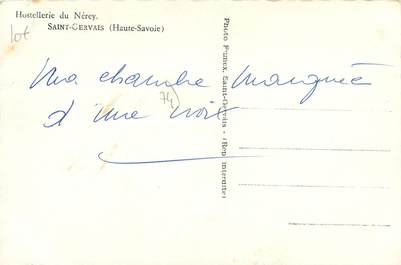 Hostellerie du Nérey.
SAINT-GERVAIS (Haute-Savoie)
lot
Ma chambre marquée
d'une croix
74)
Photo France, Saint-Gervais - (Rep. interdite)